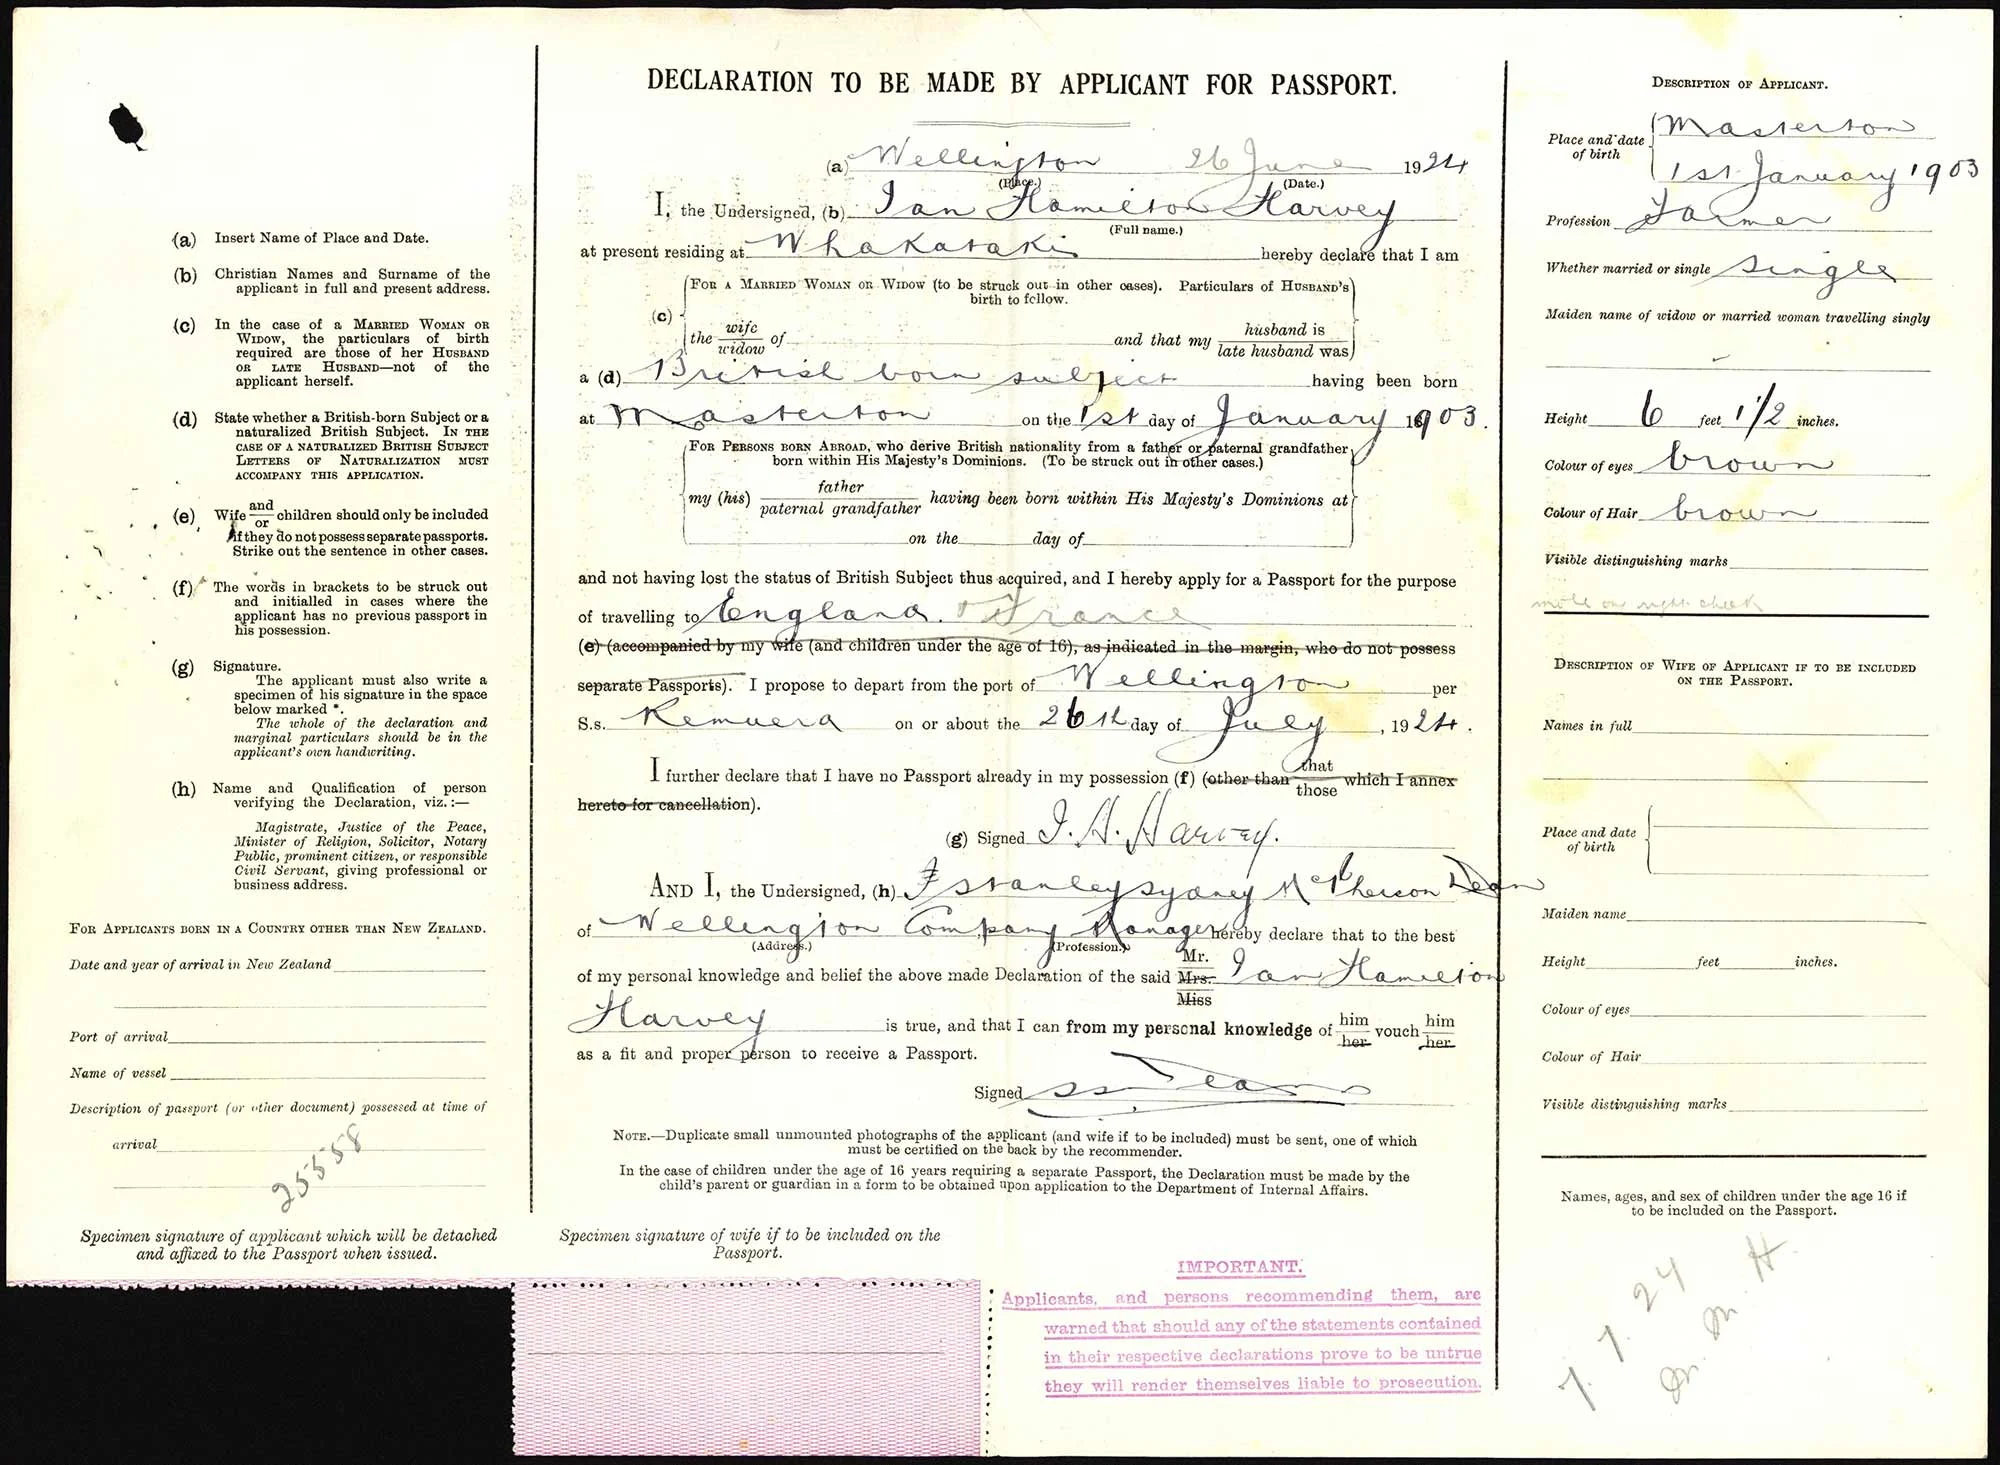 (a) Insert Name of Place and Date.
(b) Christian Names and Surname of the
applicant in full and present address.
(c) In the case of a MARRIED WOMAN OR
WIDOW, the particulars of birth
required are those of her HUSBAND
OR LATE HUSBAND—not of the
applicant herself.
(d) State whether a British-born Subject or a
naturalized British Subject. IN THE
CASE OF A NATURALIZED BRITISH SUBJECT
LETTERS OF NATURALIZATION MUST
ACCOMPANY THIS APPLICATION.
(e) Wife and/or children should only be included
if they do not possess separate passports.
Strike out the sentence in other cases.
(f) The words in brackets to be struck out
and initialled in cases where the
applicant has no previous passport in
his possession.
(g) Signature.
The applicant must also write a
specimen of his signature in the space
below marked *.
The whole of the declaration and
marginal particulars should be in the
applicant's own handwriting.
(h) Name and Qualification of person
verifying the Declaration, viz.:—
Magistrate, Justice of the Peace,
Minister of Religion, Solicitor, Notary
Public, prominent citizen, or responsible
Civil Servant, giving professional or
business address.
FOR APPLICANTS BORN IN A COUNTRY OTHER THAN NEW ZEALAND.
Date and year of arrival in New Zealand
Port of arrival
Name of vessel
Description of passport (or other document) possessed at time of
arrival
25558
Specimen signature of applicant which will be detached
and affixed to the Passport when issued.
DECLARATION TO BE MADE BY APPLICANT FOR PASSPORT.
(a) Wellington 26 June 1924
(Place.) (Date.)
I, the Undersigned, (b) Ian Hamilton Harvey
(Full name.)
at present residing at Whakataki hereby declare that I am
FOR A MARRIED WOMAN OR WIDOW (to be struck out in other cases). Particulars of HUSBAND'S
birth to follow.
(c) the wife/widow of and that my husband is/late husband was
a (d) British born subject having been born
at Masterton on the 1st day of January 1903.
FOR PERSONS BORN ABROAD, who derive British nationality from a father or paternal grandfather
born within His Majesty's Dominions. (To be struck out in other cases.)
my (his) father/paternal grandfather having been born within His Majesty's Dominions at
on the day of
and not having lost the status of British Subject thus acquired, and I hereby apply for a Passport for the purpose
of travelling to England. & France
(e) (accompanied by my wife (and children under the age of 16), as indicated in the margin, who do not possess
separate Passports). I propose to depart from the port of Wellington per
S.s. Remuera on or about the 26th day of July, 1924.
I further declare that I have no Passport already in my possession (f) (other than that/those which I annex
hereto for cancellation).
(g) Signed I. H. Harvey.
AND I, the Undersigned, (h) Stanley Sydney McPherson Dean
of Wellington Company Manager hereby declare that to the best
(Address.) (Profession.)
of my personal knowledge and belief the above made Declaration of the said Mr. Mrs. Miss Ian Hamilton
Harvey is true, and that I can from my personal knowledge of him/her vouch him/her
as a fit and proper person to receive a Passport.
Signed SS Dean
NOTE.—Duplicate small unmounted photographs of the applicant (and wife if to be included) must be sent, one of which
must be certified on the back by the recommender.
In the case of children under the age of 16 years requiring a separate Passport, the Declaration must be made by the
child's parent or guardian in a form to be obtained upon application to the Department of Internal Affairs.
Specimen signature of wife if to be included on the
Passport.
IMPORTANT.
Applicants, and persons recommending them, are
warned that should any of the statements contained
in their respective declarations prove to be untrue
they will render themselves liable to prosecution.
DESCRIPTION OF APPLICANT.
Place and date of birth Masterton
1st January 1903
Profession Farmer
Whether married or single single
Maiden name of widow or married woman travelling singly
Height 6 feet 1 1/2 inches.
Colour of eyes brown
Colour of Hair brown
Visible distinguishing marks
mole on right cheek
DESCRIPTION OF WIFE OF APPLICANT IF TO BE INCLUDED
ON THE PASSPORT.
Names in full
Place and date
of birth
Maiden name
Height feet inches.
Colour of eyes
Colour of Hair
Visible distinguishing marks
Names, ages, and sex of children under the age 16 if
to be included on the Passport.
1. 7. 24